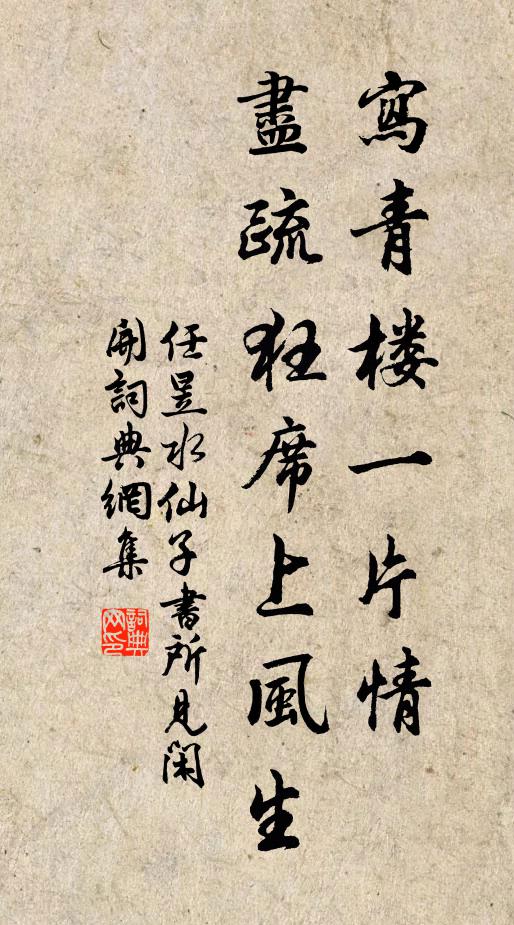 寫青楼一片情
盡疏狂席上風生
任昱水仙子書所見閑
開詞典網集
詞典
网印